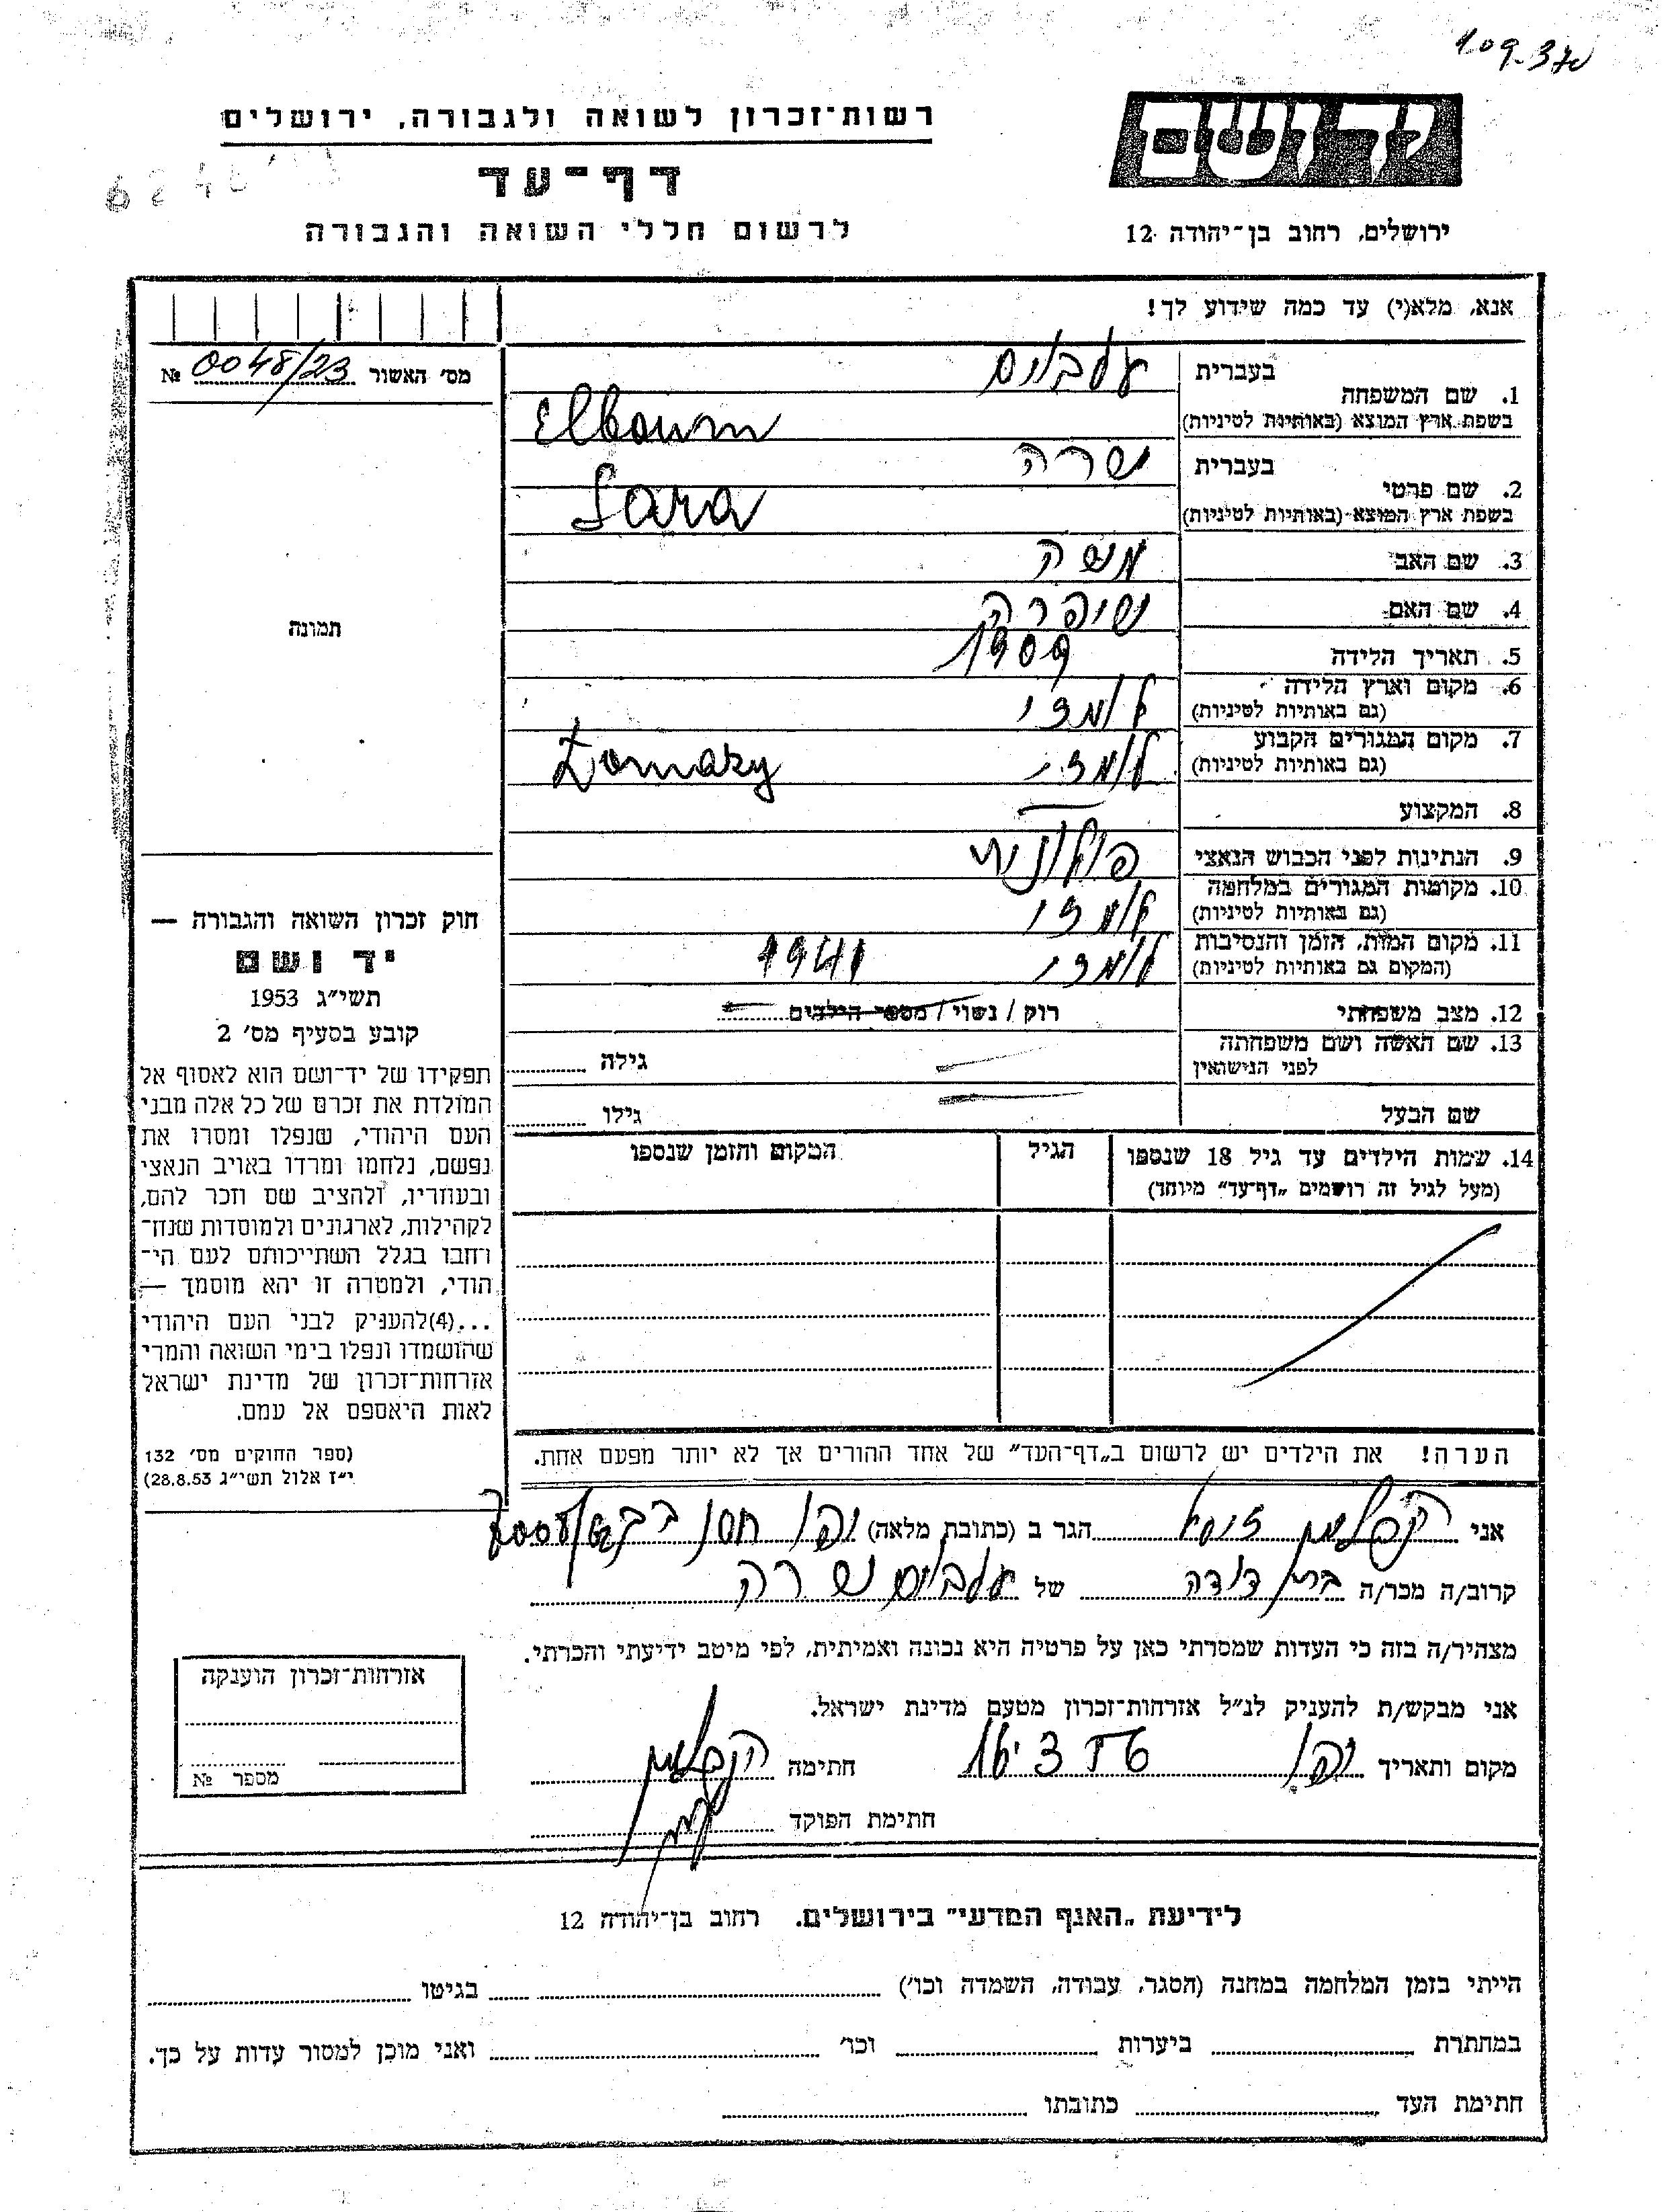 109-370
רשות־זכרון לשואה ולגבורה, ירושלים
דף־עד
לרשום חללי השואה והגבורה
ידושם
ירושלים, רחוב בן־יהודה 12
אנא, מלא(י) עד כמה שידוע לך!
מס׳ האשור 0048/23 №
1. שם המשפחה
בעברית עלבוים
בשפת ארץ המוצא (באותיות לטיניות) Elboum
2. שם פרטי
בעברית שרה
בשפת ארץ המוצא (באותיות לטיניות) Sara
3. שם האב משה
4. שם האם שיפרה
5. תאריך הלידה 1909
6. מקום וארץ הלידה
(גם באותיות לטיניות) לומזי
7. מקום המגורים הקבוע
(גם באותיות לטיניות) לומזי Łomazy
8. המקצוע —
9. הנתינות לפני הכבוש הנאצי פולונית
10. מקומות המגורים במלחמה
(גם באותיות לטיניות) לומזי
11. מקום המות, הזמן והנסיבות
(המקום גם באותיות לטיניות) לומזי 1941
12. מצב משפחתי רוק / נשוי / מספר הילדים
13. שם האשה ושם משפחתה
לפני הנישואין — גילה
שם הבעל — גילו
14. שמות הילדים עד גיל 18 שנספו
(מעל לגיל זה רושמים „דף־עד״ מיוחד)
הגיל
המקום והזמן שנספו
תמונה
חוק זכרון השואה והגבורה —
יד ושם
תשי״ג 1953
קובע בסעיף מס׳ 2
תפקידו של יד־ושם הוא לאסוף אל
המולדת את זכרם של כל אלה מבני
העם היהודי, שנפלו ומסרו את
נפשם, נלחמו ומרדו באויב הנאצי
ובעוזריו, ולהציב שם וזכר להם,
לקהילות, לארגונים ולמוסדות שנח־
רחבו בגלל השתייכותם לעם הי־
הודי, ולמטרה זו יהא מוסמך —
...(4)להעניק לבני העם היהודי
שהושמדו ונפלו בימי השואה והמרי
אזרחות־זכרון של מדינת ישראל
לאות היאספם אל עמם.
(ספר החוקים מס׳ 132
י״ז אלול תשי״ג 28.8.53)
הערה! את הילדים יש לרשום ב„דף־העד״ של אחד ההורים אך לא יותר מפעם אחת.
אני הגר ב (כתובת מלאה) יפו
קרוב/ה מכר/ה בת דודה של עלבוים שרה
מצהיר/ה בזה כי העדות שמסרתי כאן על פרטיה היא נכונה ואמיתית, לפי מיטב ידיעתי והכרתי.
אני מבקש/ת להעניק לנ״ל אזרחות־זכרון מטעם מדינת ישראל.
מקום ותאריך יפו חתימה
חתימת הפוקד
אזרחות־זכרון הוענקה
מספר №
לידיעת „האגף המדעי״ בירושלים. רחוב בן־יהודה 12
הייתי בזמן המלחמה במחנה (הסגר, עבודה, השמדה וכו׳) בגיטו
במחתרת ביערות וכו׳ ואני מוכן למסור עדות על כך.
חתימת העד כתובתו